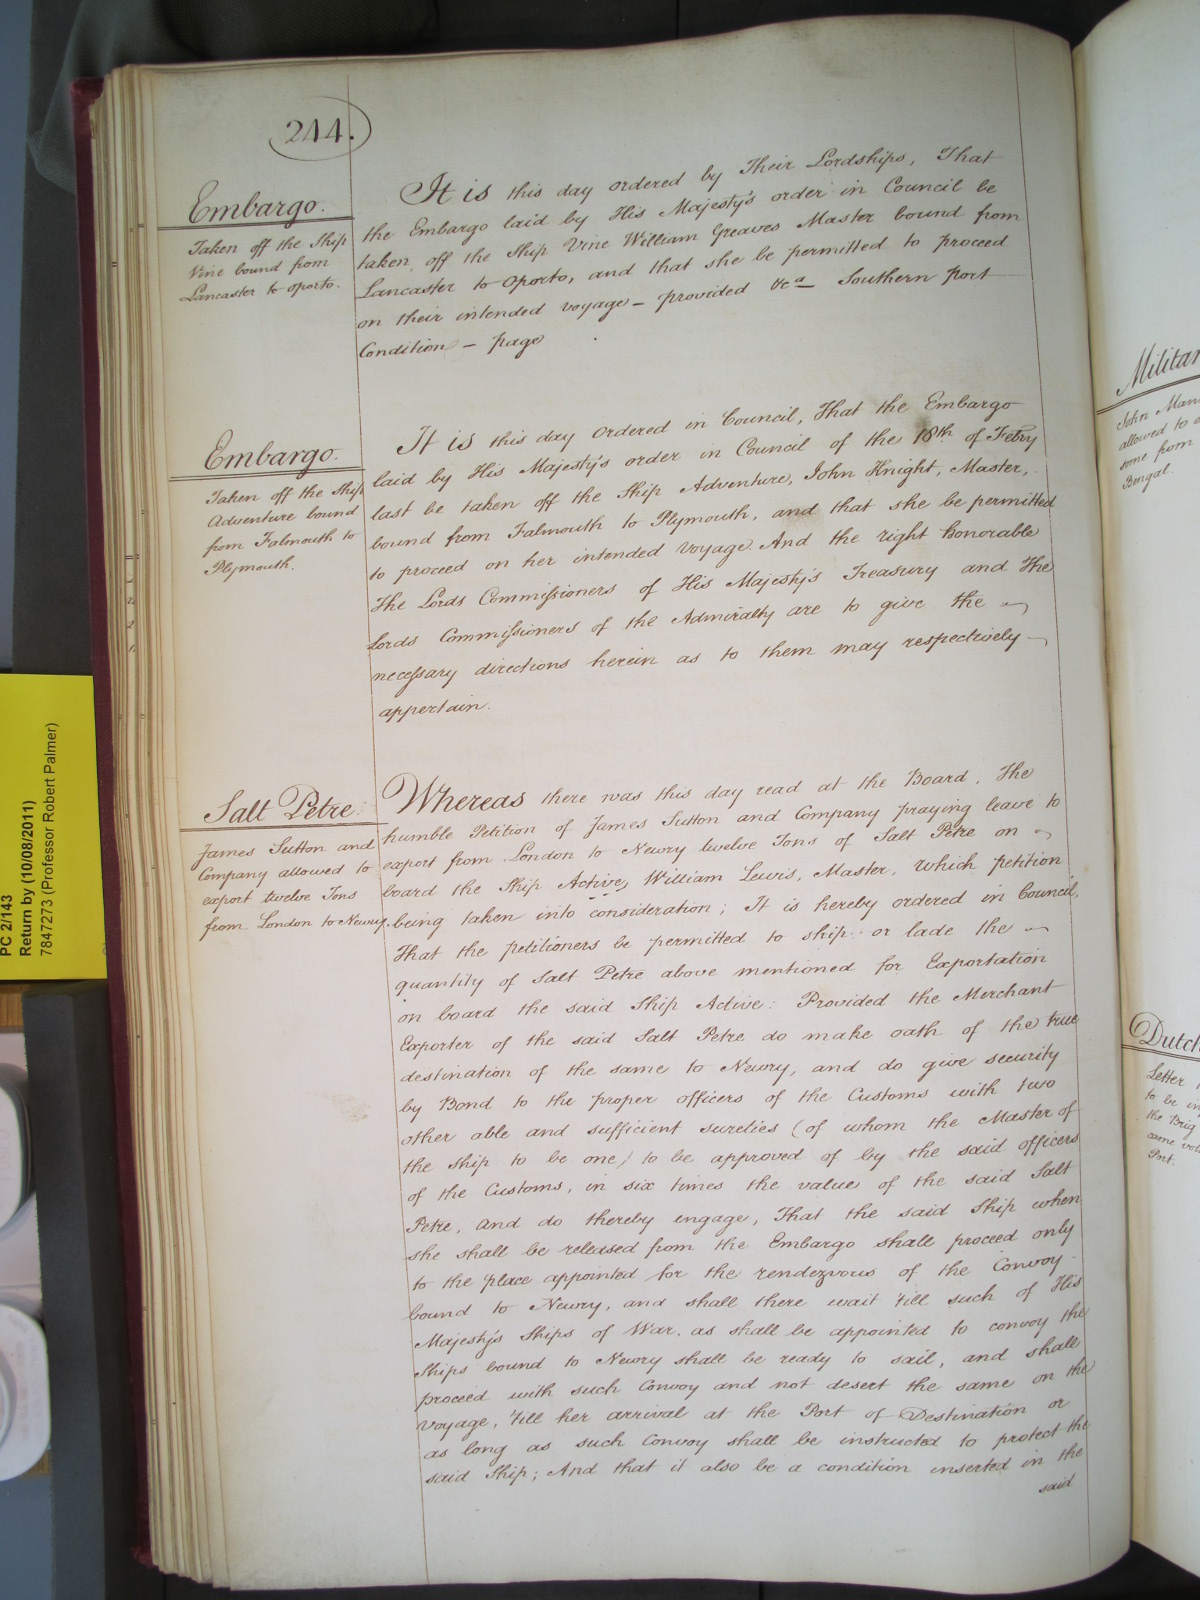 244.
Embargo.
Taken off the Ship
Vine bound from
Lancaster to Oporto.
It is this day ordered by Their Lordships, That
the Embargo laid by His Majesty's order in Council be
taken off the Ship Vine William Greaves Master bound from
Lancaster to Oporto, and that she be permitted to proceed
on their intended voyage – provided &ca Southern port
Condition – page
Embargo.
Taken off the Ship
Adventure bound
from Falmouth to
Plymouth.
It is this day Ordered in Council, That the Embargo
laid by His Majesty's order in Council of the 18th of Febry
last be taken off the Ship Adventure, John Knight, Master,
bound from Falmouth to Plymouth, and that she be permitted
to proceed on her intended Voyage. And the right honorable
The Lords Commissioners of His Majesty's Treasury and The
Lords Commissioners of the Admiralty are to give the
necessary directions herein as to them may respectively
appertain.
Salt Petre.
James Sutton and
Company allowed to
export twelve Tons
from London to Newry.
Whereas there was this day read at the Board, The
humble Petition of James Sutton and Company praying leave to
export from London to Newry twelve Tons of Salt Petre on
board the Ship Active, William Lewis, Master, which petition
being taken into consideration; It is hereby ordered in Council,
That the petitioners be permitted to ship or lade the
quantity of Salt Petre above mentioned for Exportation
on board the said Ship Active: Provided the Merchant
Exporter of the said Salt Petre do make oath of the true
destination of the same to Newry, and do give security
by Bond to the proper officers of the Customs with two
other able and sufficient sureties (of whom the Master of
the Ship to be one) to be approved of by the said officers
of the Customs, in six times the value of the said Salt
Petre, and do thereby engage, That the said Ship when
she shall be released from the Embargo shall proceed only
to the place appointed for the rendezvous of the Convoy
bound to Newry, and shall there wait 'till such of His
Majesty's Ships of War, as shall be appointed to convoy the
Ships bound to Newry shall be ready to sail, and shall
proceed with such Convoy and not desert the same on the
Voyage, 'till her arrival at the Port of Destination or
as long as such Convoy shall be instructed to protect the
said Ship; And that it also be a condition inserted in the
said
PC 2/143
Return by (10/08/2011)
7847273 (Professor Robert Palmer)
Militar
John Man
allowed to e
some from
Bengal.
Dutch
Letter
to be
the Brig
came
Port.